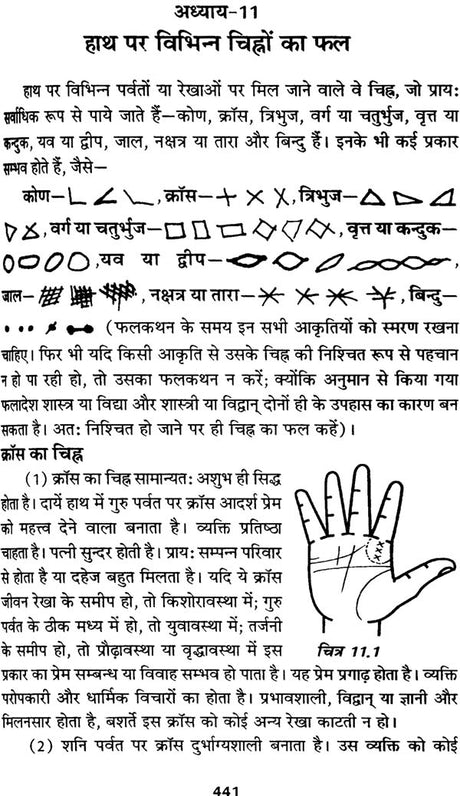 अध्याय-11
हाथ पर विभिन्न चिह्नों का फल
हाथ पर विभिन्न पर्वतों या रेखाओं पर मिल जाने वाले वे चिह्न, जो प्राय:
सर्वाधिक रूप से पाये जाते हैं—कोण, क्रॉस, त्रिभुज, वर्ग या चतुर्भुज, वृत्त या
कन्दुक, यव या द्वीप, जाल, नक्षत्र या तारा और बिन्दु हैं। इनके भी कई प्रकार
सम्भव होते हैं, जैसे—
कोण— , क्रॉस— , त्रिभुज—
, वर्ग या चतुर्भुज— , वृत्त या कन्दुक—
, यव या द्वीप— ,
जाल— , नक्षत्र या तारा— , बिन्दु—
(फलकथन के समय इन सभी आकृतियों को स्मरण रखना
चाहिए। फिर भी यदि किसी आकृति से उसके चिह्न की निश्चित रूप से पहचान
न हो पा रही हो, तो उसका फलकथन न करें; क्योंकि अनुमान से किया गया
फलादेश शास्त्र या विद्या और शास्त्री या विद्वान् दोनों ही के उपहास का कारण बन
सकता है। अत: निश्चित हो जाने पर ही चिह्न का फल कहें)।
क्रॉस का चिह्न
(1) क्रॉस का चिह्न सामान्यत: अशुभ ही सिद्ध
होता है। दायें हाथ में गुरु पर्वत पर क्रॉस आदर्श प्रेम
को महत्त्व देने वाला बनाता है। व्यक्ति प्रतिष्ठा
चाहता है। पत्नी सुन्दर होती है। प्राय: सम्पन्न परिवार
से होता है या दहेज बहुत मिलता है। यदि ये क्रॉस
जीवन रेखा के समीप हो, तो किशोरावस्था में; गुरु
पर्वत के ठीक मध्य में हो, तो युवावस्था में; तर्जनी
के समीप हो, तो प्रौढ़ावस्था या वृद्धावस्था में इस
चित्र 11.1
प्रकार का प्रेम सम्बन्ध या विवाह सम्भव हो पाता है। यह प्रेम प्रगाढ़ होता है। व्यक्ति
परोपकारी और धार्मिक विचारों का होता है। प्रभावशाली, विद्वान् या ज्ञानी और
मिलनसार होता है, बशर्ते इस क्रॉस को कोई अन्य रेखा काटती न हो।
(2) शनि पर्वत पर क्रॉस दुर्भाग्यशाली बनाता है। उस व्यक्ति को कोई
441